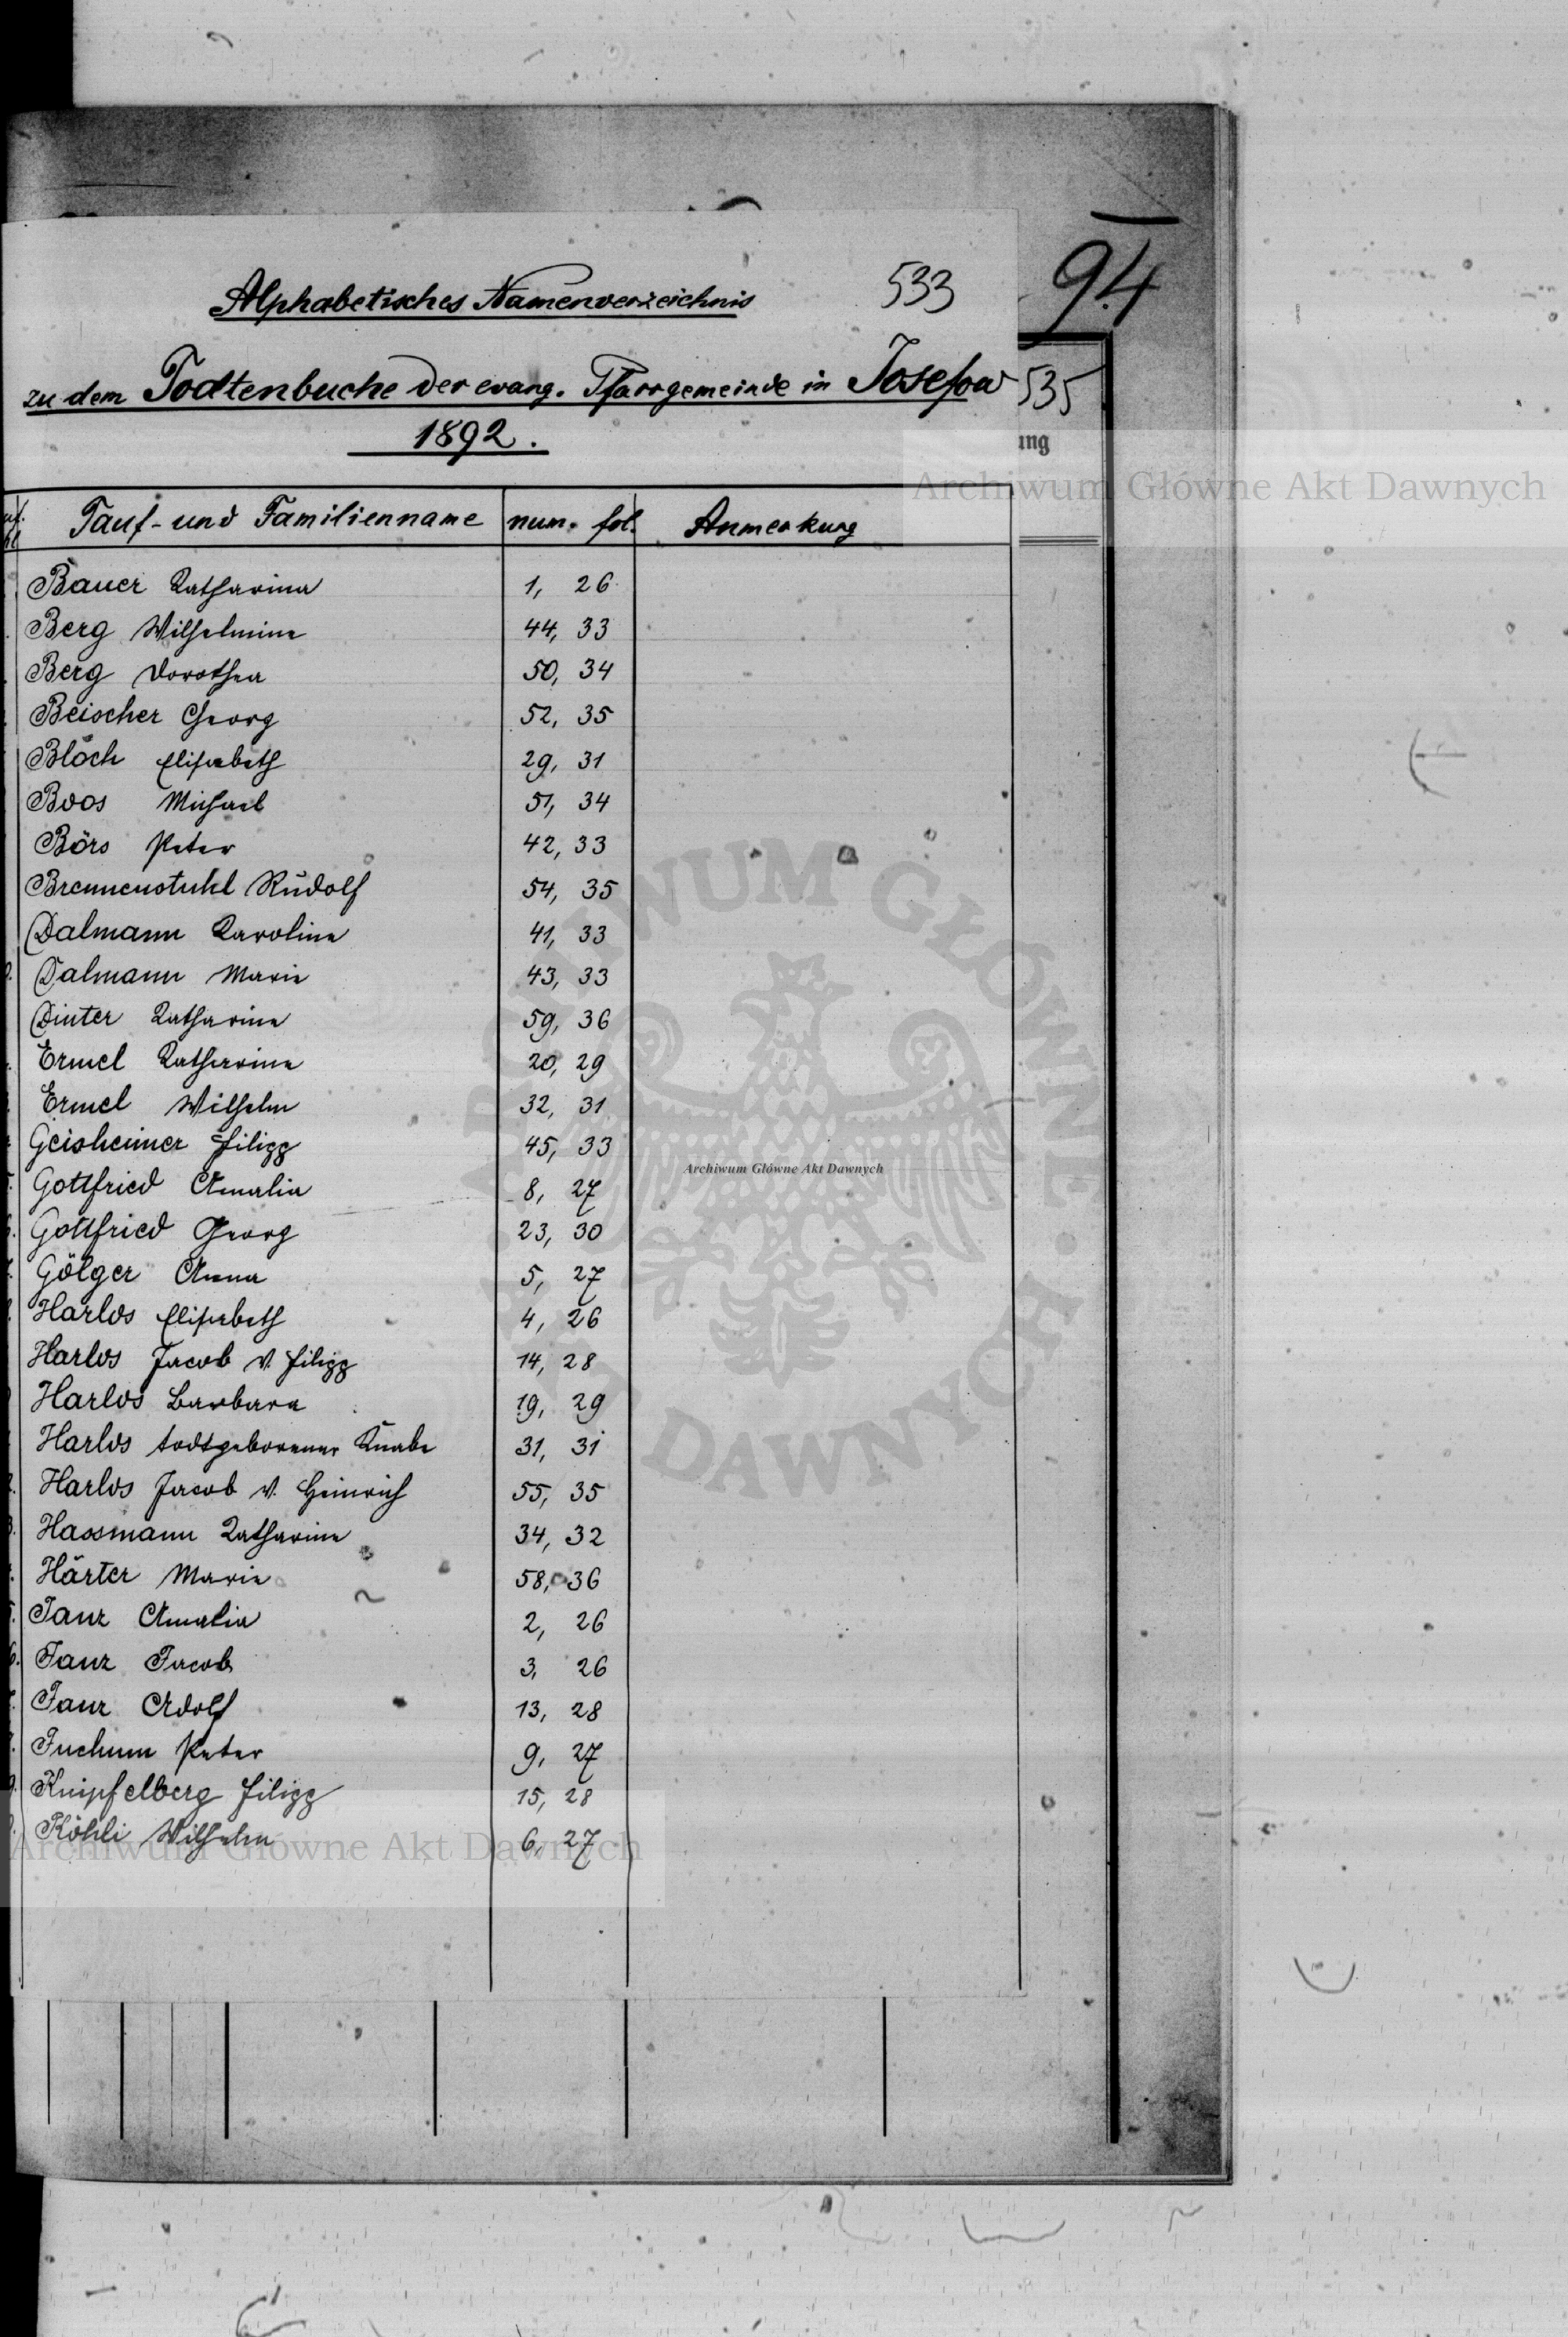 533
94
Alphabetisches Namenverzeichnis
zu dem Todtenbuche der evang. Pfarrgemeinde in Josefow
535
1892.
ung
Archiwum Główne Akt Dawnych
Tauf- und Familienname num. fol. Anmerkung
Bauer Katharina 1, 26
Berg Wilhelmine 44, 33
Berg Dorothea 50, 34
Beischer Georg 52, 35
Bloch Elisabeth 29, 31
Boos Michael 51, 34
Börs Peter 42, 33
Brennenstuhl Rudolf 54, 35
Dalmann Karoline 41, 33
Dalmann Marie 43, 33
Dinter Katharine 59, 36
Ermel Katharine 20, 29
Ermel Wilhelm 32, 31
Geisheimer Filipp 45, 33
Archiwum Główne Akt Dawnych
Gottfried Amalia 8, 27
Gottfried Georg 23, 30
Gölger Anna 5, 27
Harlos Elisabeth 4, 26
Harlos Jacob v. Filipp 14, 28
Harlos Barbara 19, 29
Harlos todtgeborener Knabe 31, 31
Harlos Jacob v. Heinrich 55, 35
Hassmann Katharine 34, 32
Härter Marie 58, 36
Janz Amalia 2, 26
Janz Jacob 3, 26
Janz Adolf 13, 28
Juchum Peter 9, 27
Knipfelberg Filipp 15, 28
Köhli Wilhelm 6, 27
Archiwum Główne Akt Dawnych
ARCHIWUM GŁÓWNE AKT DAWNYCH